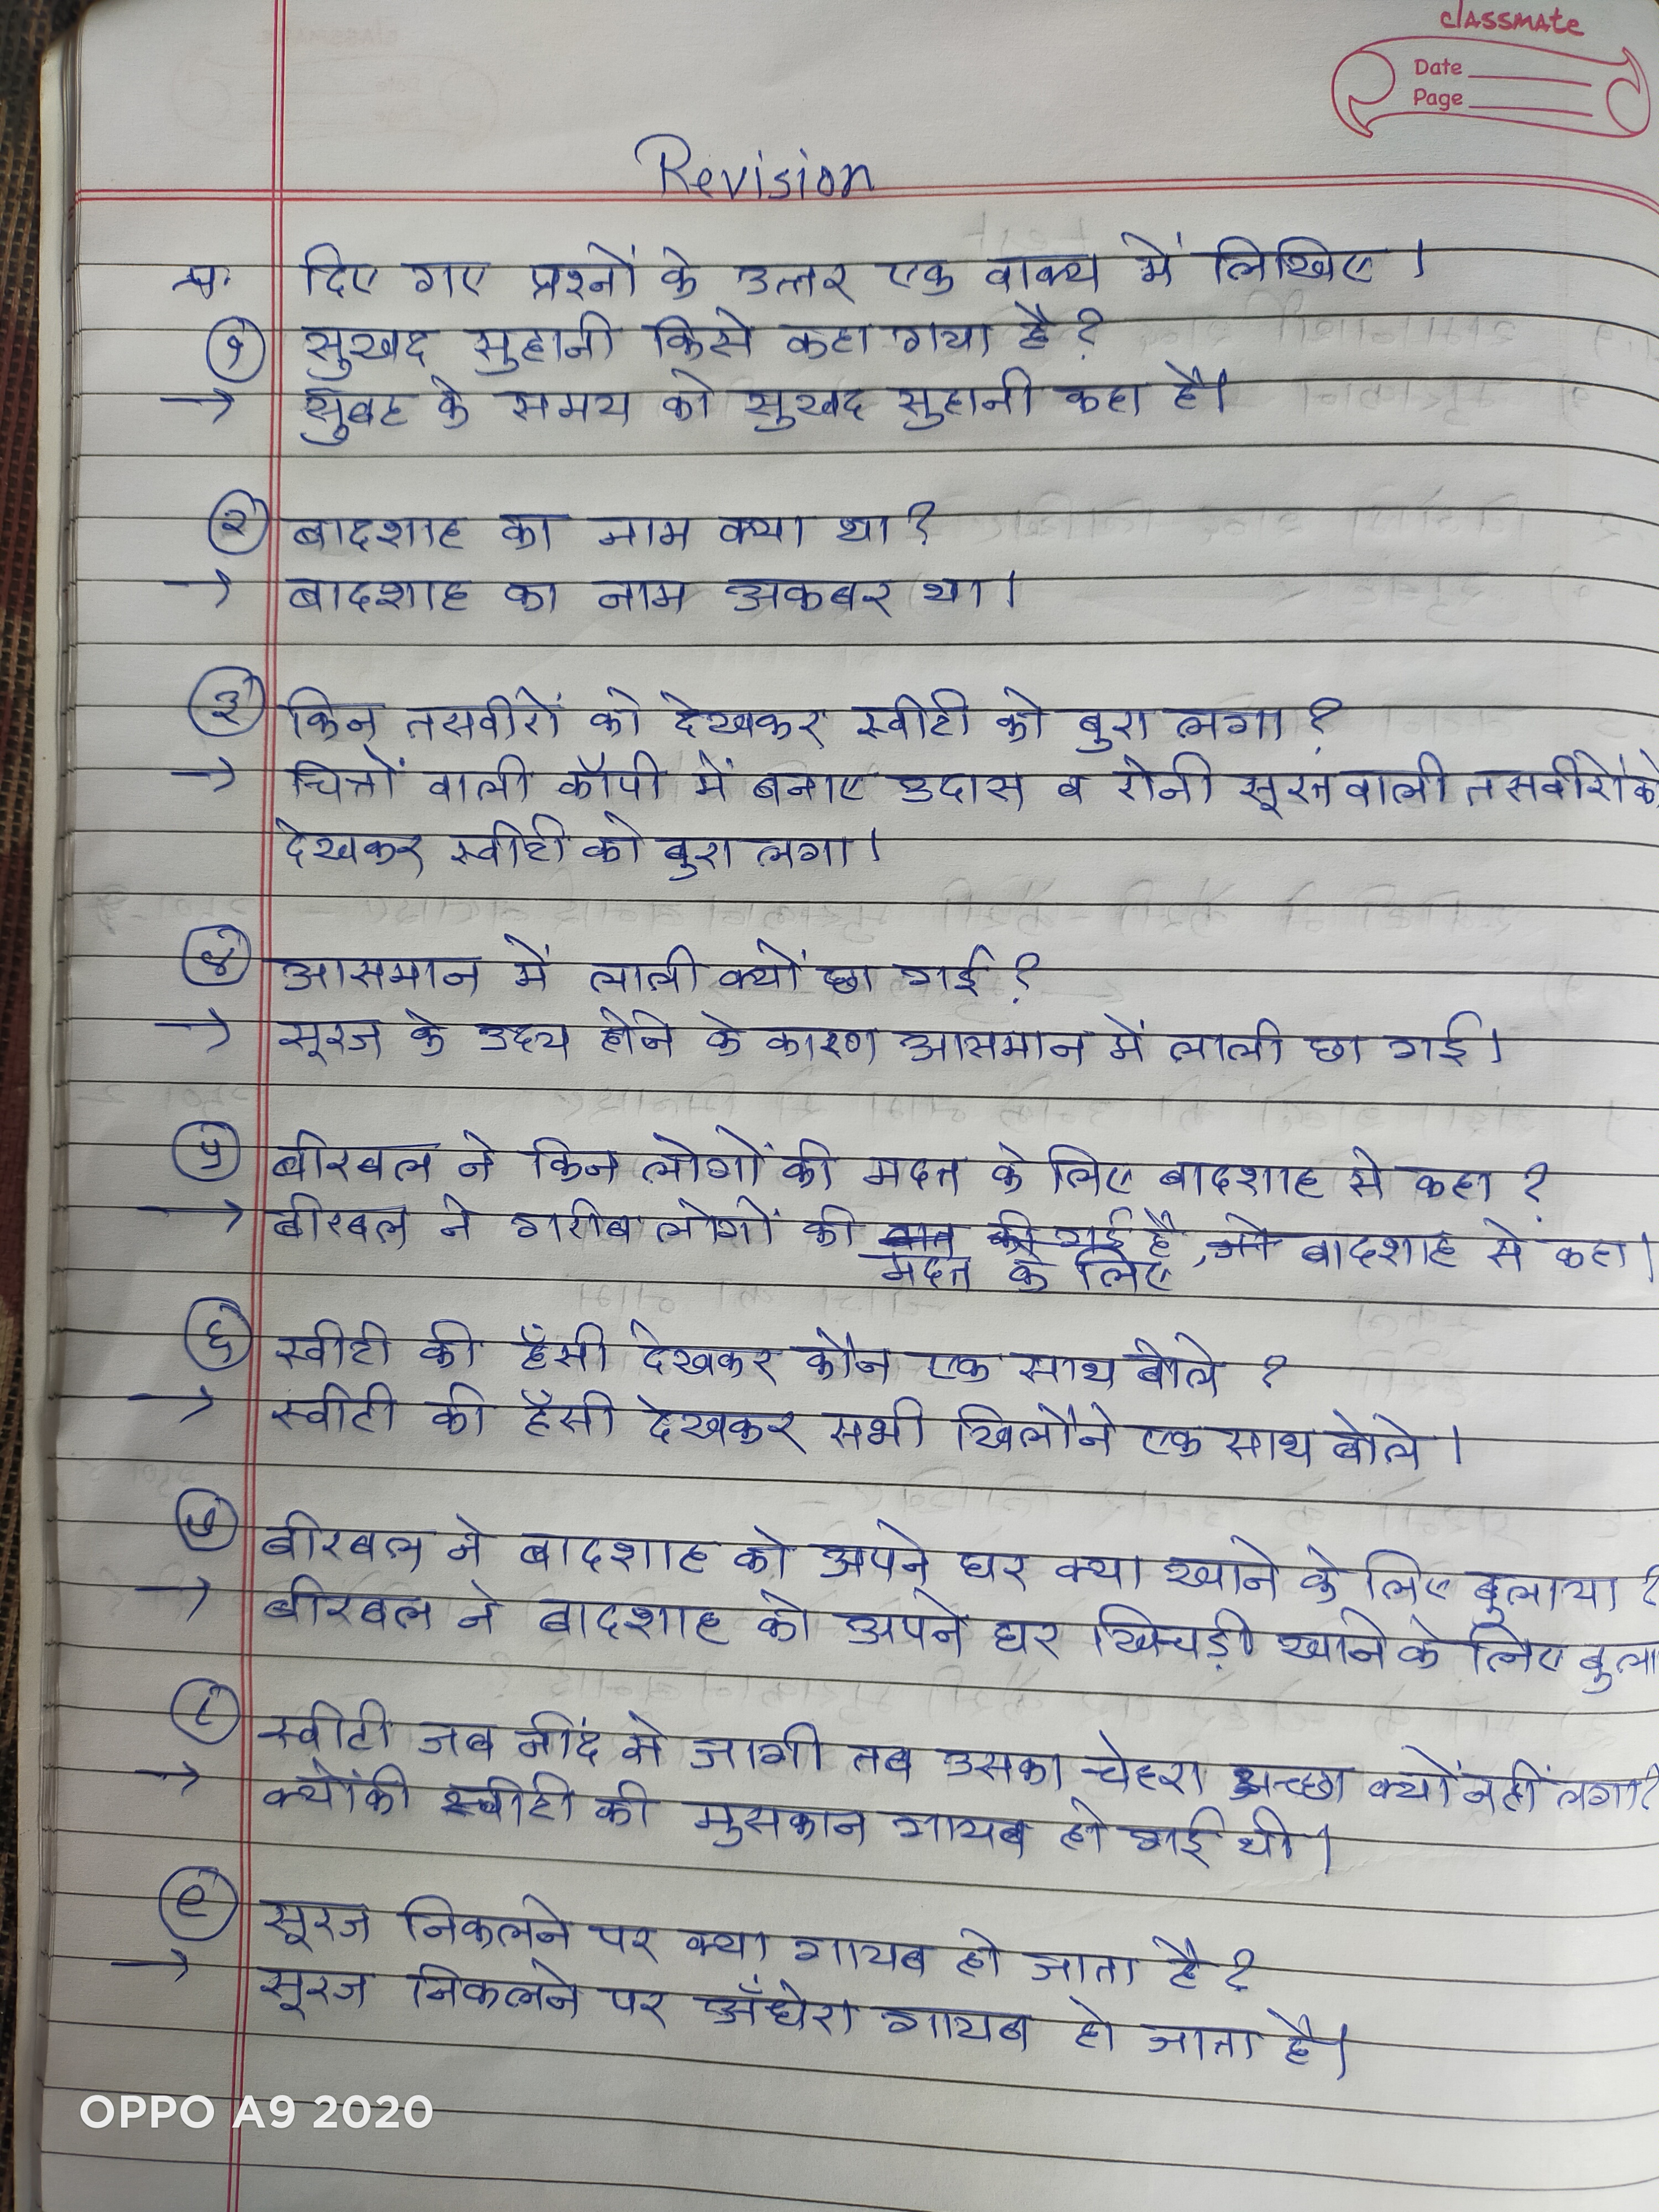 classmate
Date
Page
Revision
प्र. दिए गए प्रश्नों के उत्तर एक वाक्य में लिखिए।
१ सुखद सुहानी किसे कहा गया है?
→ सुबह के समय को सुखद सुहानी कहा है।
२ बादशाह का नाम क्या था?
→ बादशाह का नाम अकबर था।
३ किन तसवीरों को देखकर स्वीटी को बुरा लगा?
→ चित्रों वाली कॉपी में बनाए उदास व रोनी सूरत वाली तसवीरों को
देखकर स्वीटी को बुरा लगा।
४ आसमान में लाली क्यों छा गई?
→ सूरज के उदय होने के कारण आसमान में लाली छा गई।
५ बीरबल ने किन लोगों की मदत के लिए बादशाह से कहा?
→ बीरबल ने गरीब लोगों की बात की गई है, जो बादशाह से कहा।
मदत के लिए
६ स्वीटी की हँसी देखकर कौन एक साथ बोले?
→ स्वीटी की हँसी देखकर सभी खिलौने एक साथ बोले।
७ बीरबल ने बादशाह को अपने घर क्या खाने के लिए बुलाया?
→ बीरबल ने बादशाह को अपने घर खिचड़ी खाने के लिए बुला
८ स्वीटी जब नींद से जागी तब उसका चेहरा अच्छा क्यों नहीं लगा?
→ क्योंकी स्वीटी की मुसकान गायब हो गई थी।
९ सूरज निकलने पर क्या गायब हो जाता है?
→ सूरज निकलने पर अँधेरा गायब हो जाता है।
OPPO A9 2020